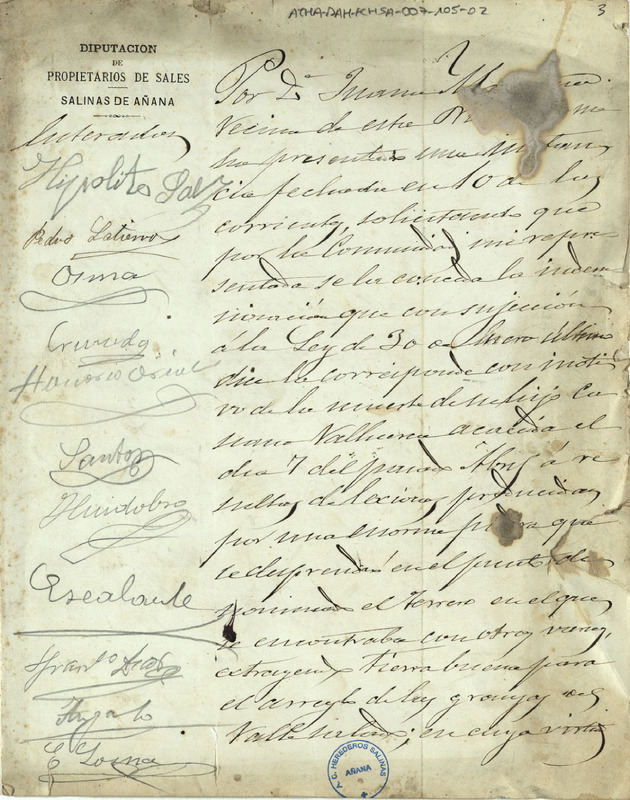 ATHA-DAH-FCHSA-007-105-02
3
DIPUTACION
DE
PROPIETARIOS DE SALES
SALINAS DE AÑANA
Enterados
Hipolito Saez
Pedro
Osma
Honorio
Santos
Huidobro
Escalante
Angulo
E. Loma
Por Dª Juana
Vecina de esta
ha presentado una instan
cia fechada en 10 de los
corrientes, solicitando que
por la Comunidad mi repre-
sentada se la conceda la indem
nización que con sujeción
á la Ley de 30 de Enero último
dice la corresponde con moti
vo de la muerte de su hijo
Valluerca acaecida el
dia 7 del pasado Abril á re
sultas de lesiones producidas
por una enorme piedra que
se desprendió en el punto de
nominado el Terrero en el que
se encontraba con otros varios,
extrayendo tierra buena para
el arreglo de las granjas del
Valle salado; en cuya virtud
A.C. HEREDEROS SALINAS
AÑANA